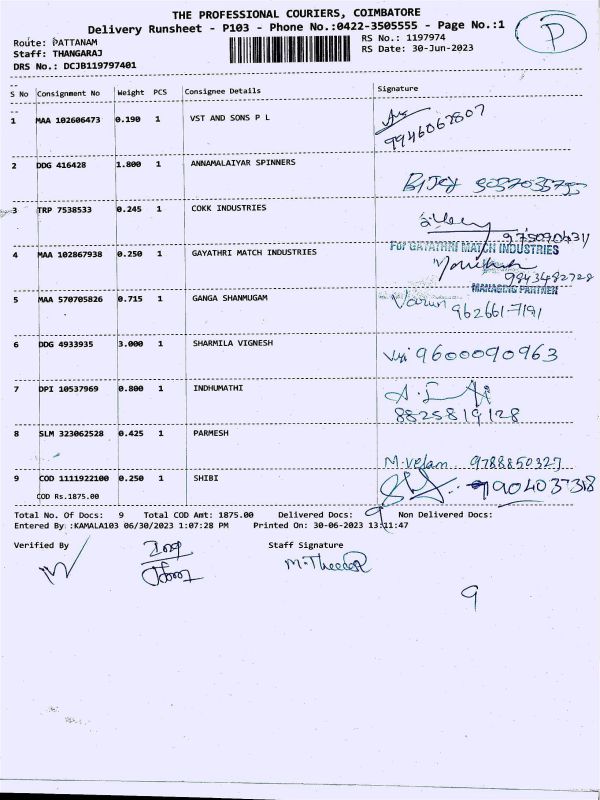 THE PROFESSIONAL COURIERS, COIMBATORE
Delivery Runsheet - P103 - Phone No.:0422-3505555 - Page No.:1
P
Route: PATTANAM RS No.: 1197974
Staff: THANGARAJ RS Date: 30-Jun-2023
DRS No.: DCJB119797401
S No Consignment No Weight PCS Consignee Details Signature
1 MAA 102606473 0.190 1 VST AND SONS P L
9946067807
2 DDG 416428 1.800 1 ANNAMALAIYAR SPINNERS
3 TRP 7538533 0.245 1 COKK INDUSTRIES
4 MAA 102867938 0.250 1 GAYATHRI MATCH INDUSTRIES
For GAYATHRI MATCH INDUSTRIES
9843482728
MANAGING PARTNER
5 MAA 570705826 0.715 1 GANGA SHANMUGAM
Varun 962661-7191
6 DDG 4933935 3.000 1 SHARMILA VIGNESH
9600090963
7 DPI 10537969 0.800 1 INDHUMATHI
8825819128
8 SLM 323062528 0.425 1 PARMESH
M.velam 9788850327
9 COD 1111922100 0.250 1 SHIBI
COD Rs.1875.00
Total No. Of Docs: 9 Total COD Amt: 1875.00 Delivered Docs: 9 Non Delivered Docs:
Entered By :KAMALA103 06/30/2023 1:07:28 PM Printed On: 30-06-2023 13:11:47
Verified By Staff Signature
9